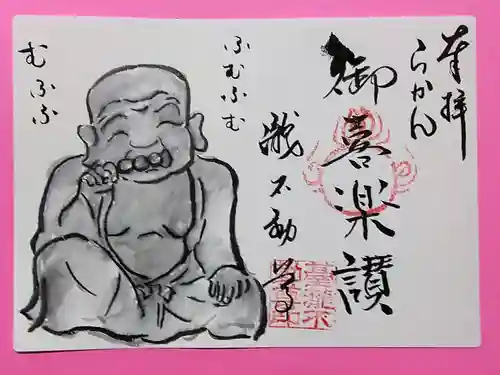 奉拝
らかん
御喜楽讃
滝不動尊
ふむふむ
むふふ